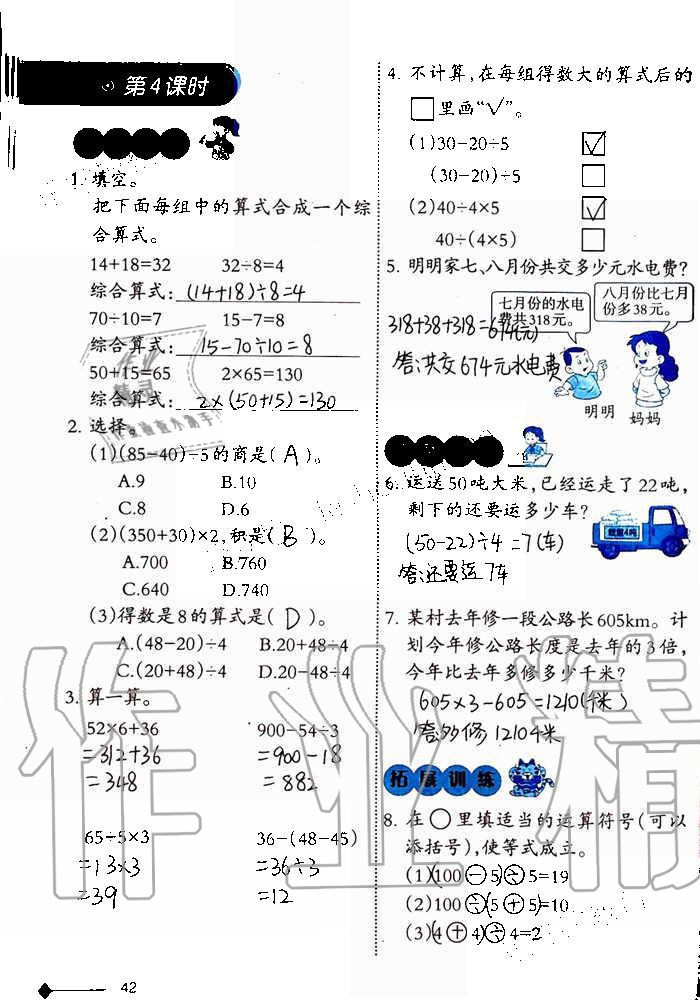 第4课时
1. 填空。
把下面每组中的算式合成一个综
合算式。
14+18=32 32÷8=4
综合算式: (14+18)÷8=4
70÷10=7 15-7=8
综合算式: 15-70÷10=8
50+15=65 2×65=130
综合算式: 2×(50+15)=130
2. 选择。
(1)(85-40)÷5的商是( A )。
A.9 B.10
C.8 D.6
(2)(350+30)×2,积是( B )。
A.700 B.760
C.640 D.740
(3)得数是8的算式是( D )。
A.(48-20)÷4 B.20+48÷4
C.(20+48)÷4 D.20-48÷4
3. 算一算。
52×6+36 900-54÷3
=312+36 =900-18
=348 =882
65÷5×3 36-(48-45)
=13×3 =36÷3
=39 =12
42
4. 不计算,在每组得数大的算式后的
□里画“√”。
(1)30-20÷5 ☑
(30-20)÷5 □
(2)40÷4×5 ☑
40÷(4×5) □
5. 明明家七、八月份共交多少元水电费?
七月份的水电
费共318元。
八月份比七月
份多38元。
318+38+318=674(元)
答:共交674元水电费
明明 妈妈
6. 运送50吨大米,已经运走了22吨,
剩下的还要运多少车?
载重4吨
(50-22)÷4=7(车)
答:还要运7车
7. 某村去年修一段公路长605km。计
划今年修公路长度是去年的3倍,
今年比去年多修多少千米?
605×3-605=1210(千米)
答多修1210千米
拓展训练
8. 在○里填适当的运算符号(可以
添括号),使等式成立。
(1)(100-5)÷5=19
(2)100÷(5+5)=10
(3)(4+4)÷4=2
作业精